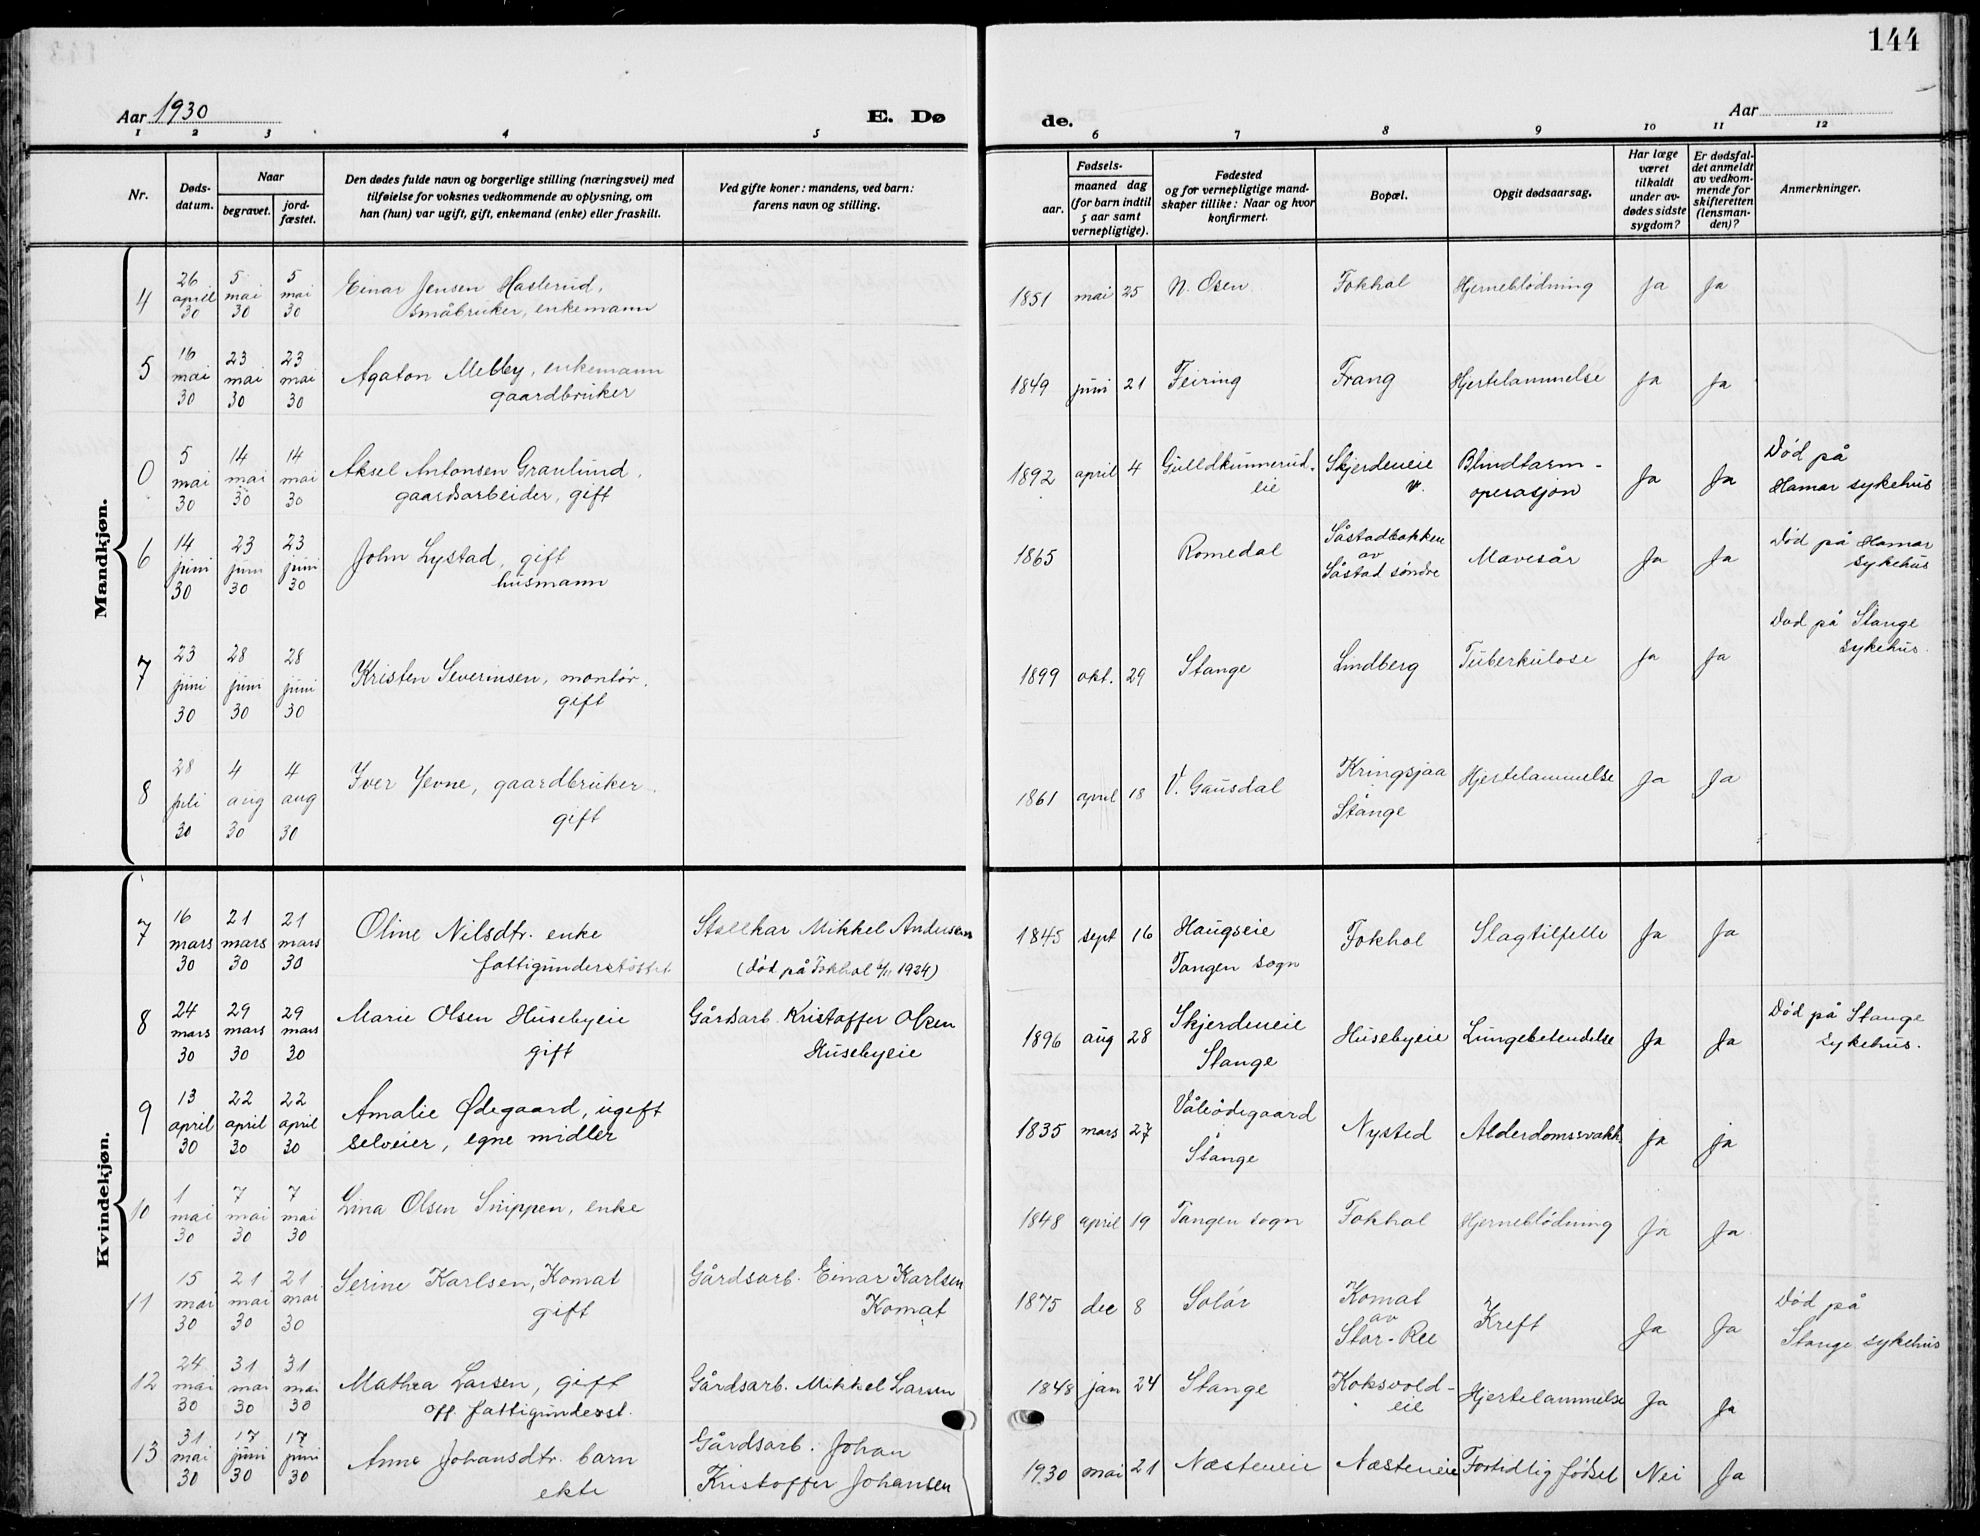 144
Aar 1930
E. Dø
de.
Aar
1 2 3 4 5 6 7 8 9 10 11 12
Nr.
Døds-
datum.
Naar
begravet.
jord-
fæstet.
Den dødes fulde navn og borgerlige stilling (næringsvei) med
tilføielse for voksnes vedkommende av oplysning, om
han (hun) var ugift, gift, enkemand (enke) eller fraskilt.
Ved gifte koner: mandens, ved barn:
farens navn og stilling.
Fødsels-
aar.
maaned dag
(for barn indtil
5 aar samt
vernepligtige).
Fødested
og for vernepligtige mand-
skaper tillike: Naar og hvor
konfirmert.
Bopæl.
Opgit dødsaarsag.
Har læge
været
tilkaldt
under av-
dødes sidste
sygdom?
Er dødsfal-
det anmeldt
av vedkom-
mende for
skifteretten
(lensman-
den)?
Anmerkninger.
Mandkjøn.
4
26 april 30
5 mai 30
5 mai 30
Einar Jensen Haslerud,
småbruker, enkemann
1851 mai 25
N. Osen
Fokhol
Hjerneblödning
Ja
Ja
5
16 mai 30
23 mai 30
23 mai 30
Agaton Melby, enkemann
gaardbruker
1849 juni 21
Feiring
Frang
Hjertelammelse
Ja
Ja
0
5 mai 30
14 mai 30
14 mai 30
Aksel Antonsen Granlund,
gaardsarbeider, gift
1892 april 4
Gulldkunnerud-
eie
Skjerdeneie
v.
Blindtarm-
operasjon
Ja
Ja
Död på
Hamar sykehus
6
14 juni 30
23 juni 30
23 juni 30
John Lystad, gift
husmann
1865
Romedal
Såstadbakken
av
Såstad söndre
Mavesår
Ja
Ja
Död på Hamar
sykehus
7
23 juni 30
28 juni 30
28 juni 30
Kristen Severinsen, montör.
gift
1899 okt. 29
Stange
Lindberg
Tuberkulose
Ja
Ja
Död på Stange
sykehus.
8
28 juli 30
4 aug 30
4 aug 30
Iver Jevne, gaardbruker.
gift
1861 april 18
V. Gausdal
Kringsjaa
Stange
Hjertelammelse
Ja
Ja
Kvindekjøn.
7
16 mars 30
21 mars 30
21 mars 30
Oline Nilsdtr. enke
fattigunderstöttet
Stallkar Mikkel Andersen
(död på Fokhol 1924)
1845 sept 16
Haugseie
Tangen sogn
Fokhol
Slagtilfelle
Ja
Ja
8
24 mars 30
29 mars 30
29 mars 30
Marie Olsen Husebyeie
gift
Gårdsarb. Kristoffer Olsen
Husebyeie
1896 aug 28
Skjerdeneie
Stange
Husebyeie
Lungebetendelse
Ja
Ja
Död på Stange
sykehus.
9
13 april 30
22 april 30
22 april 30
Amalie Ødegaard, ugift
selveier, egne midler
1835 mars 27
Våleödegaard
Stange
Nysted
Alderdomssvakh.
Ja
ja
10
1 mai 30
7 mai 30
7 mai 30
Lina Olsen Snippen, enke
1848 april 19
Tangen sogn
Fokhol
Hjerneblödning
Ja
Ja
11
15 mai 30
21 mai 30
21 mai 30
Serine Karlsen, Komat
gift
Gårdsarb. Einar Karlsen
Komat
1875 dec 8
Solör
Komat
av
Stor-Ree
Kreft
Ja
Ja
Död på
Stange sykehus
12
24 mai 30
31 mai 30
31 mai 30
Mathea Larsen, gift
off. fattigunderst.
Gårdsarb. Mikkel Larsen
1848 jan 24
Stange
Koksvold-
eie
Hjertelammelse
Ja
Ja
13
31 mai 30
17 juni 30
17 juni 30
Anne Johansdtr. barn
ekte
Gårdsarb. Johan
Kristoffer Johansen
1930 mai 21
Næsteneie
Næsteneie
Fortidlig födsel
Nei
Ja